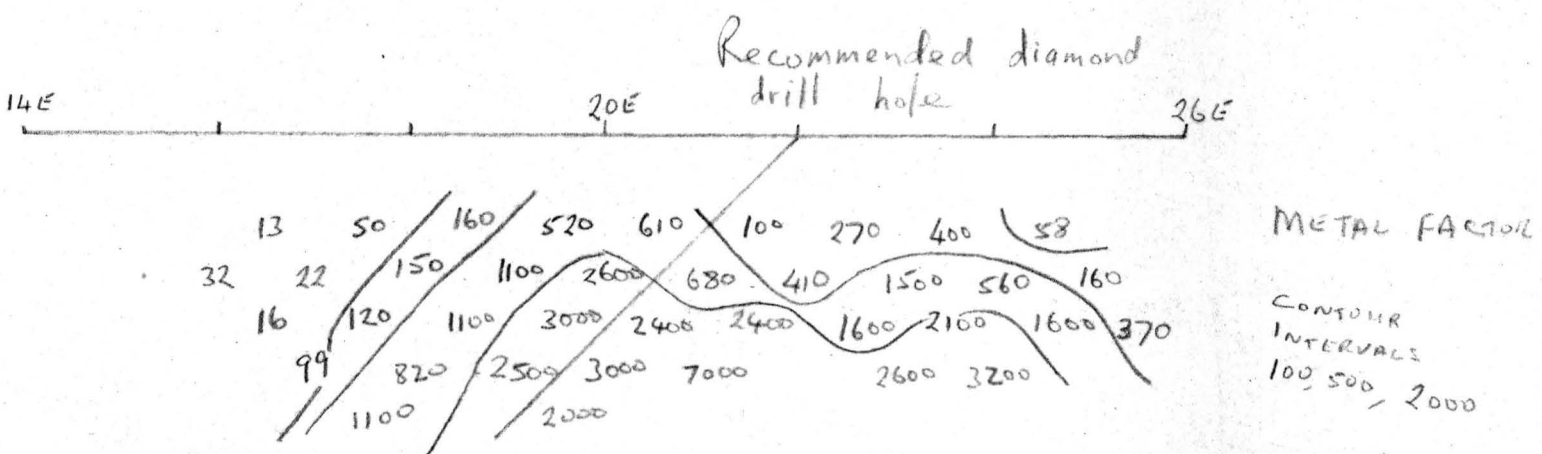 Recommended diamond
drill hole
14E 20E 26E
13 50 160 520 610 100 270 400 58
METAL FACTOR
32 22 150 1100 2600 680 410 1500 560 160
16 120 1100 3000 2400 2400 1600 2100 1600 370
99 820 2500 3000 7000 2600 3200
1100 2000
CONTOUR
INTERVALS
100, 500, 2000